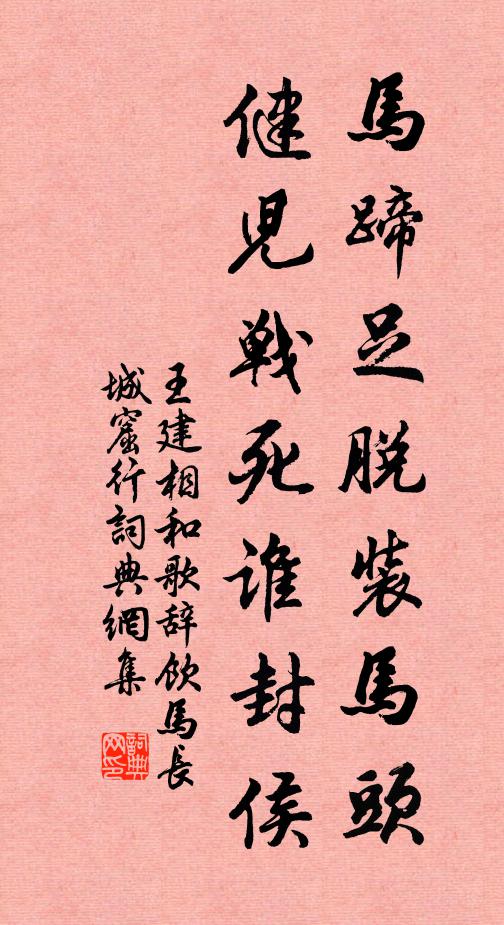 馬蹄足脱裝馬頭
健児戦死谁封侯
王建相和歌辞飲馬長
城窟行詞典網集
詞典
网印